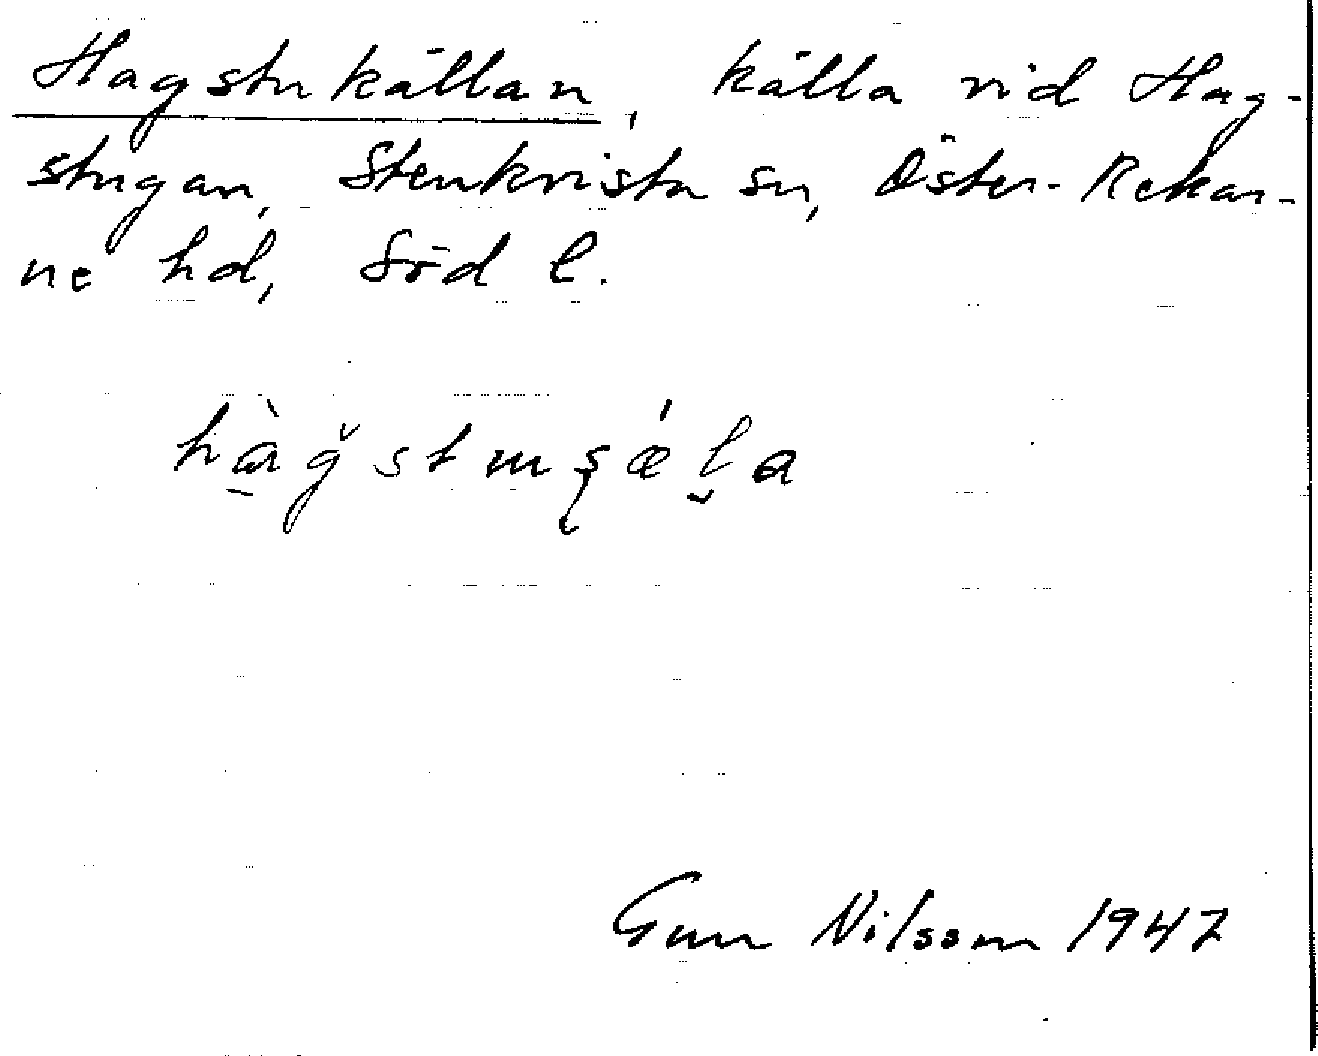 Hagstukällan, källa vid Hag-
stugan, Stenkvista sn, Öster-Rekar-
ne hd, Söd l.
Gun Nilsson 1947